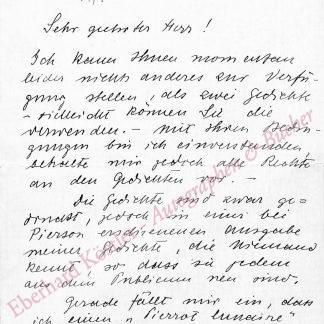 Sehr geehrter Herr!
Ich kann Ihnen momentan
leider nichts anderes zur Verfü-
gung stellen, als zwei Gedichte
- vielleicht können Sie die
verwenden. - mit Ihren Bedin-
gungen bin ich einverstanden,
behalte mir jedoch alle Rechte
an den Gedichten vor. -
Die Gedichte sind zwar ge-
druckt, jedoch in einer bei
Pierson erschienenen Ausgabe
meiner Gedichte, die Niemand
kennt, so dass sie jedem
aus dem Publicum neu sind.
Gerade fällt mir ein, dass
ich einen "Pierrot lunaire"
Eberhard Köstler Autographen & Bücher